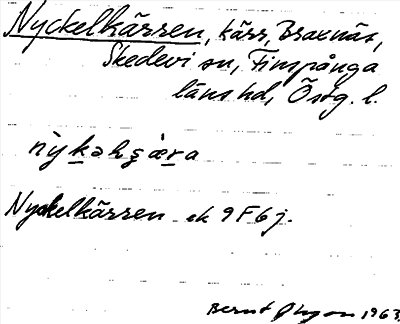 Nyckelkärren, kärr, Braxnäs,
Skedevi sn, Finspånga
läns hd, Östg. l.
Nyckelkärren ek 9F6j.
Bernt 1963